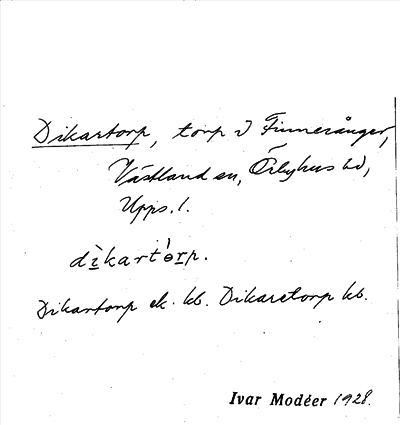 Dikartorp, torp i Finneränger,
Västland sn, Örbyhus hd,
Upps. l.
dìkart'ɵrp.
Dikartorp ek. kb. Dikaretorp kb.
Ivar Modéer 1928.